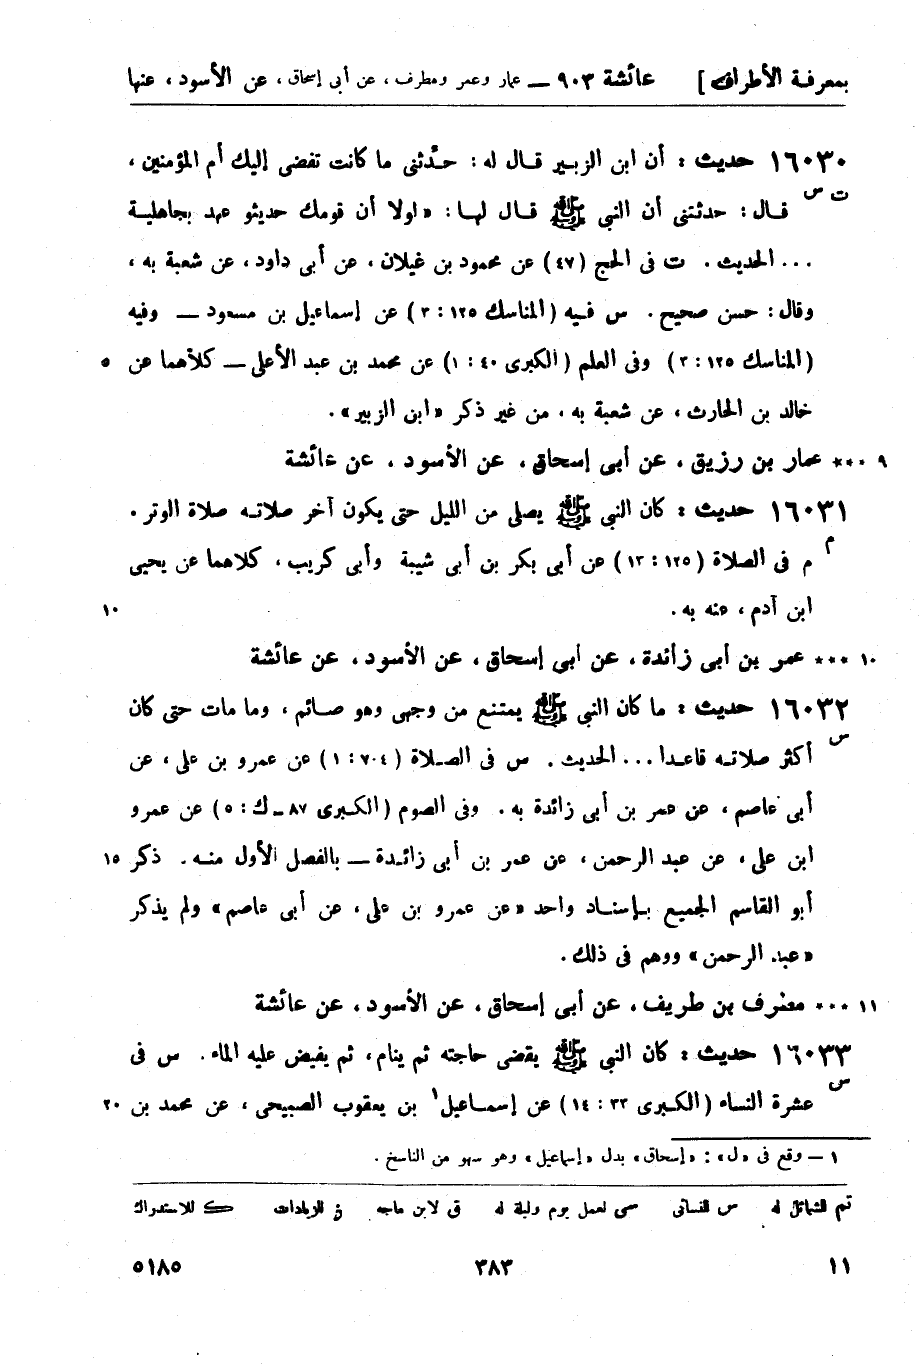 بمعرفة الأطراف] عائشة ٩٠٣ – عمار وعمر ومطرف، عن أبي إسحاق، عن الأسود، عنها
١٦٠٣٠ حديث : أن ابن الزبير قال له : حدّثني ما كانت تفضي إليك أم المؤمنين ،
ت س قال : حدثتني أن النبي ﷺ قال لها : «لولا أن قومك حديثو عهد بجاهلية
... الحديث . ت في الحج (٤٧) عن محمود بن غيلان ، عن أبي داود ، عن شعبة به ،
وقال : حسن صحيح . س فيه (المناسك ١٢٥ : ٣) عن إسماعيل بن مسعود – وفيه
(المناسك ١٢٥ : ٣) وفي العلم (الكبرى ٤٠ : ١) عن محمد بن عبد الأعلى – كلاهما عن ٥
خالد بن الحارث ، عن شعبة به ، من غير ذكر «ابن الزبير» .
٩ *** عمار بن رزيق ، عن أبي إسحاق ، عن الأسود ، عن عائشة
١٦٠٣١ حديث : كان النبي ﷺ يصلي من الليل حتى يكون آخر صلاته صلاة الوتر .
م م في الصلاة (١٢٥ : ١٣) عن أبي بكر بن أبي شيبة وأبي كريب ، كلاهما عن يحيى
ابن آدم ، عنه به . ١٠
١٠ *** عمر بن أبي زائدة ، عن أبي إسحاق ، عن الأسود ، عن عائشة
١٦٠٣٢ حديث : ما كان النبي ﷺ يمتنع من وجهي وهو صائم ، وما مات حتى كان
س أكثر صلاته قاعدا ... الحديث . س في الصلاة (٧٠٤ : ١) عن عمرو بن علي ، عن
أبي عاصم ، عن عمر بن أبي زائدة به . وفي الصوم (الكبرى ٨٧ ـ ك : ٥) عن عمرو
ابن علي ، عن عبد الرحمن ، عن عمر بن أبي زائدة – بالفصل الأول منه . ذكر ١٥
أبو القاسم الجميع بإسناد واحد «عن عمرو بن علي ، عن أبي عاصم» ولم يذكر
«عبد الرحمن» ووهم في ذلك .
١١ *** مطرف بن طريف ، عن أبي إسحاق ، عن الأسود ، عن عائشة
١٦٠٣٣ حديث : كان النبي ﷺ يقضي حاجته ثم ينام ، ثم يفيض عليه الماء . س في
س عشرة النساء (الكبرى ٣٣ : ١٤) عن إسماعيل١ بن يعقوب الصبيحي ، عن محمد بن ٢٠
١ – وقع في «ل» : «إسحاق» بدل «إسماعيل» وهو سهو من الناسخ .
تم للشمائل له س للنسائي سى لعمل يوم وليلة له ق لابن ماجه ز للزيادات ك للاستدراك
١١ ٣٨٣ ٥١٨٥